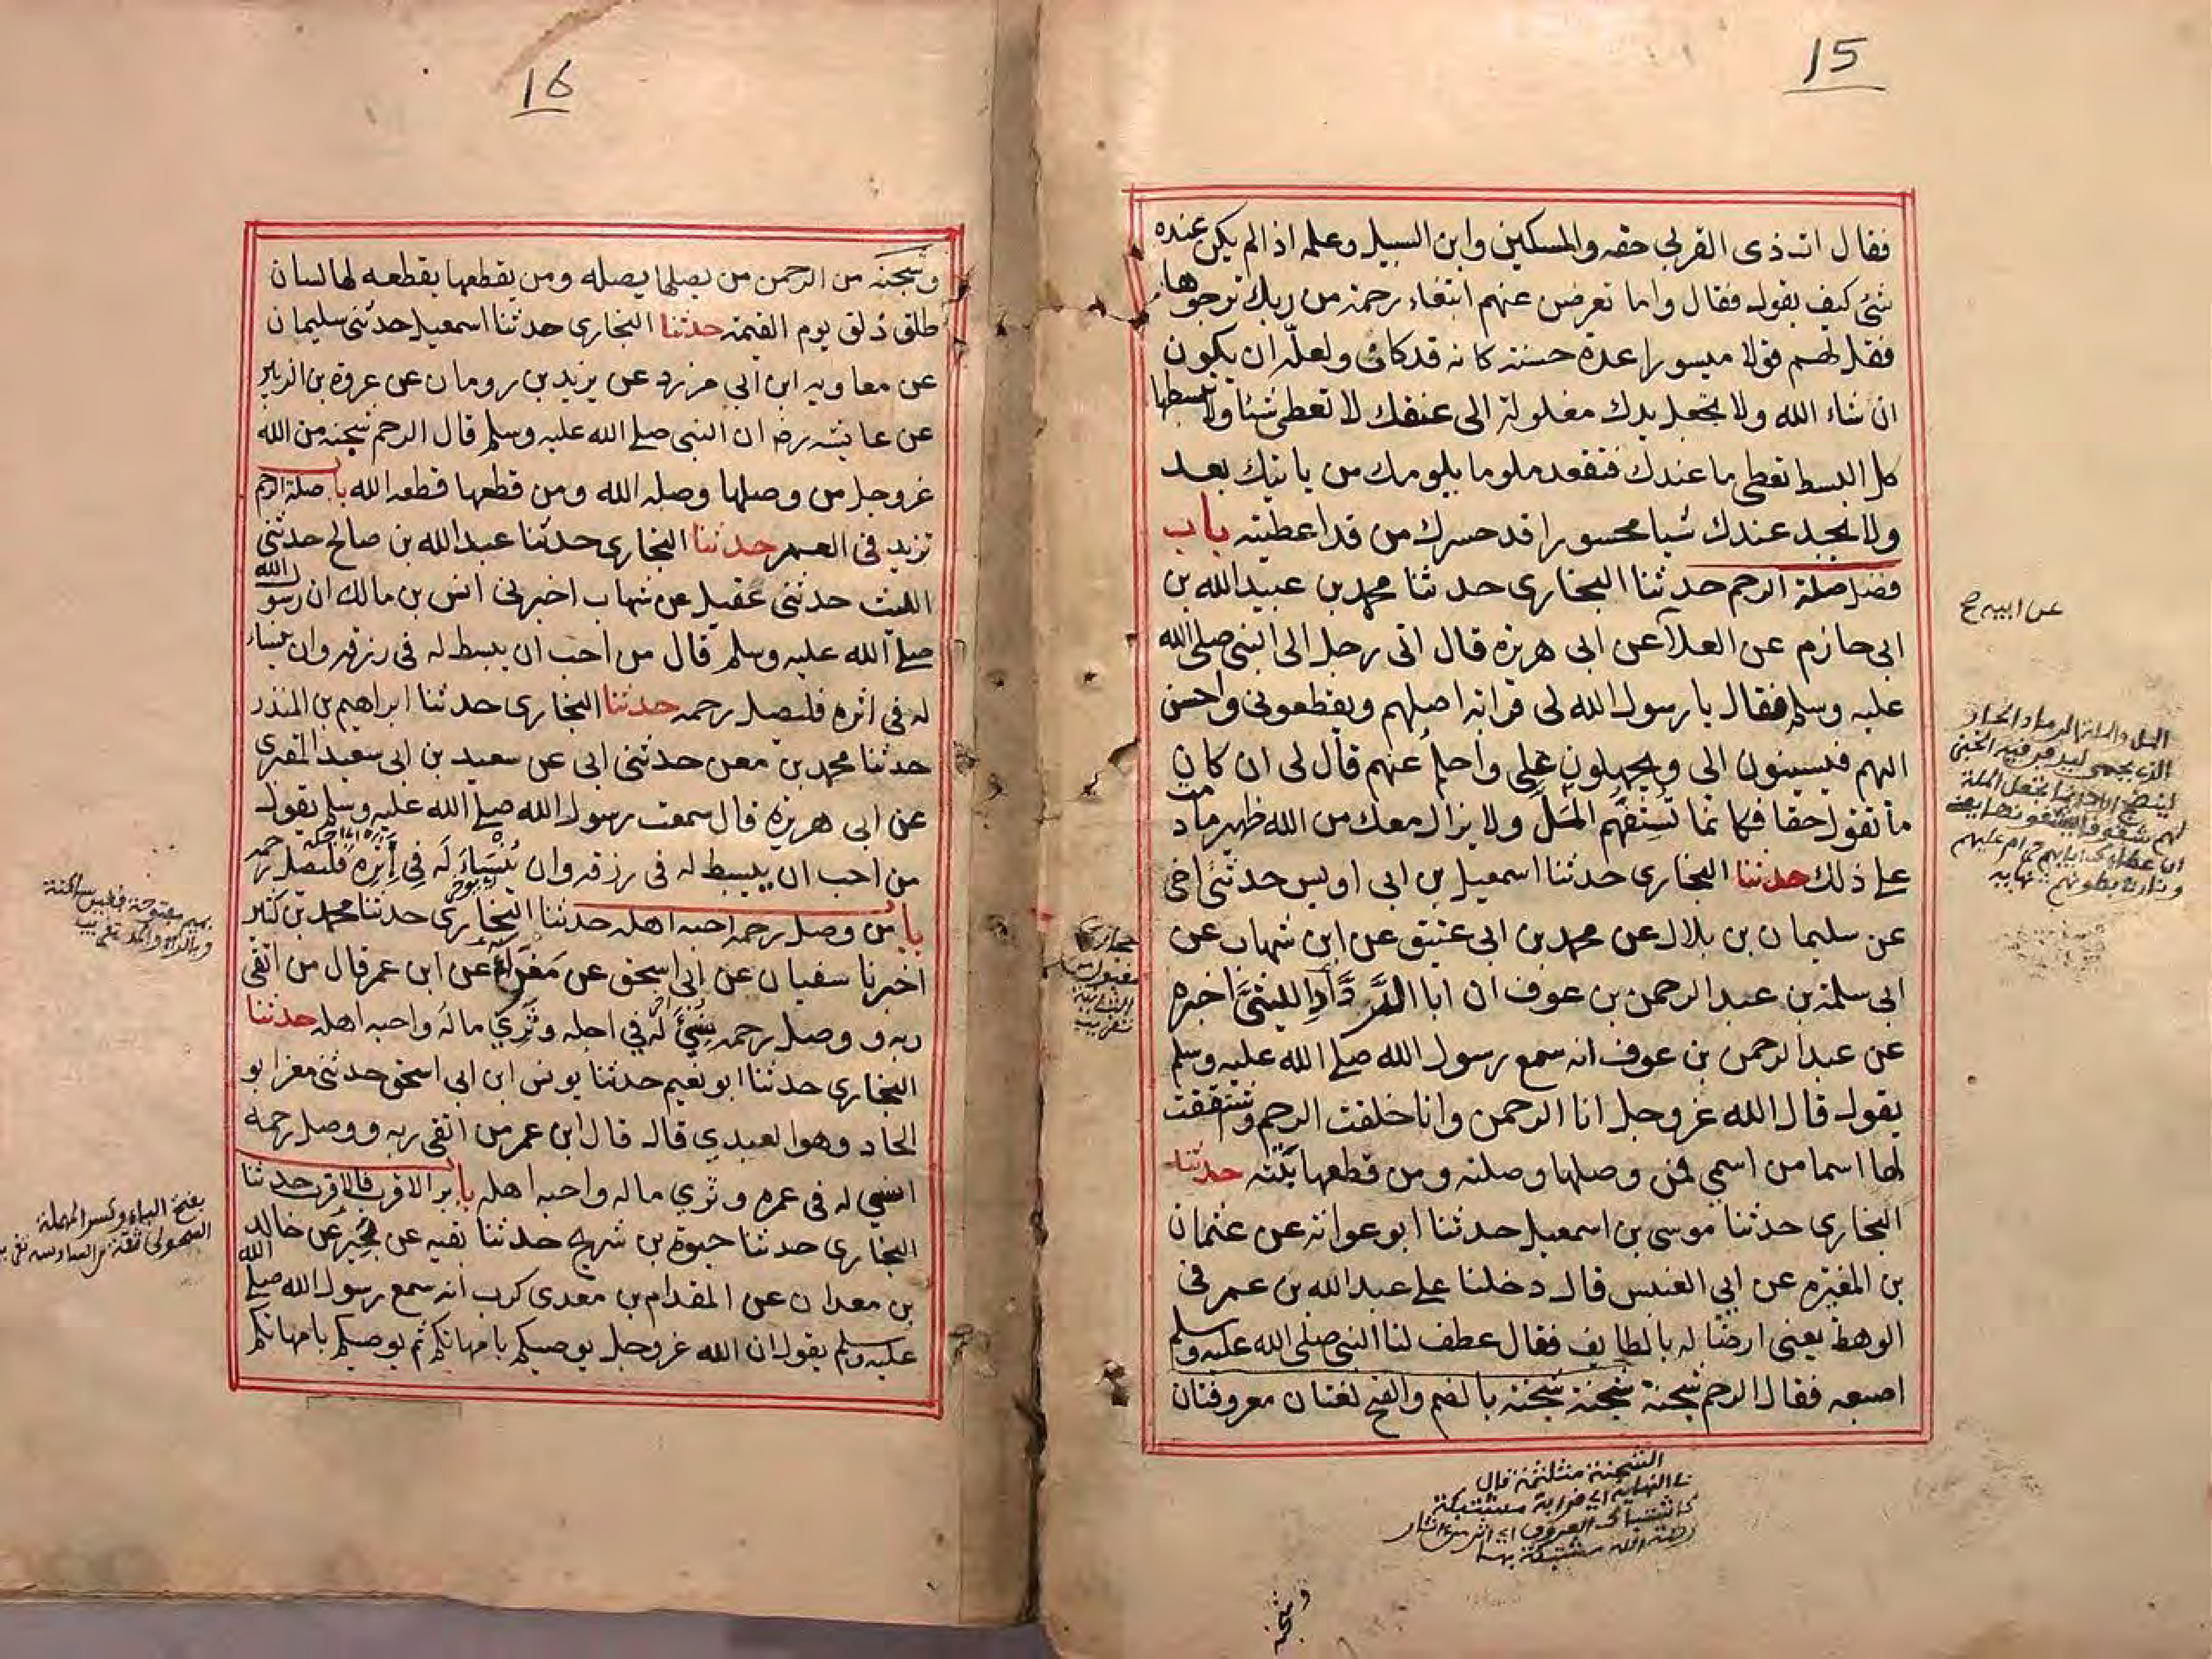 15
فقال ات ذى القربى حقه والمسكين وابن السبيل وعلمه اذا لم يكن عنده
شئ كيف يقول فقال واما تعرضن عنهم ابتغاء رحمة من ربك ترجوها
فقل لهم قولا ميسورا عدة حسنة كانه قد كان ولعله ان يكون
ان شاء الله ولا تجعل يدك مغلولة الى عنقك لا تعطى شيئا ولا تبسطها
كل البسط تعطى ما عندك فتقعد ملوما يلومك من ياتيك بعد
ولا يجد عندك شيا محسورا قد حسرك من قد اعطيته باب
فضل صلة الرحم حدثنا البخارى حدثنا محمد بن عبيد الله بن
ابى حازم عن العلآ عن ابى هريرة قال اتى رجل الى النبى صلى الله
عليه وسلم فقال يا رسول الله لى قرابة اصلهم ويقطعونى واحسن
اليهم فيسيئون الى ويجهلون على واحلم عنهم قال لى ان كان
ما تقول حقا فكانما تسفهم المل ولا يزال معك من الله ظهير ما دمت
على ذلك حدثنا البخارى حدثنا اسمعيل بن ابى اويس حدثنى اخى
عن سليمان بن بلال عن محمد بن ابى عتيق عن ابن شهاب عن
ابى سلمة بن عبد الرحمن بن عوف ان ابا الرداد الليثى اخبره
عن عبد الرحمن بن عوف انه سمع رسول الله صلى الله عليه وسلم
يقول قال الله عزوجل انا الرحمن وانا خلقت الرحم وشتققت
لها اسما من اسمي فمن وصلها وصلته ومن قطعها بتته حدثنا
البخارى حدثنا موسى بن اسمعيل حدثنا ابو عوانة عن عثمان
بن المغيره عن ابي العنبس قال دخلنا على عبد الله بن عمر فى
الوهط يعنى ارضا له بالطايف فقال عطف لنا النبى صلى الله عليه وسلم
اصبعه فقال الرحم شجنة شجنة شجنة بالضم والفتح لغتان معروفتان
عن ابيه ح
الشجنة مثلثة قال
وشجنة
16
وشجنة من الرحمن من يصلها يصله ومن يقطعها يقطعه لها لسان
طلق ذلق يوم القيمة حدثنا البخارى حدثنا اسمعيل حدثنى سليمان
عن معاويه ابن ابي مزرد عن يزيد بن رومان عن عروة بن الزبير
عن عايشه رضـ ان النبى صلى الله عليه وسلم قال الرحم شجنه من الله
عزوجل من وصلها وصله الله ومن قطعها قطعه الله باب صلة الرحم
تزيد فى العمر حدثنا البخارى حدثنا عبد الله بن صالح حدثنى
الليث حدثنى عقيل عن شهاب اخبرنى انس بن مالك ان رسول الله
صلى الله عليه وسلم قال من احب ان يبسط له فى رزقه وان ينساء
له فى اثره فليصل رحمه حدثنا البخارى حدثنا ابراهيم بن المنذر
حدثنا محمد بن معن حدثنى ابى عن سعيد بن ابى سعيد المقبرى
عن ابى هريرة قال سمعت رسول الله صلى الله عليه وسلم يقول
من احب ان يبسط له فى رزقه وان ينساء له في اثره فليصل رحمه
باب من وصل رحمه احبه اهله حدثنا البخارى حدثنا محمد بن كثير
اخبرنا سفيان عن ابى اسحق عن مغراء عن ابن عمر قال من اتقى
ربه و وصل رحمه ينسئ له في اجله وثري ماله واحبه اهله حدثنا
البخارى حدثنا ابو نعيم حدثنا يونس ابن ابى اسحق حدثنى مغرا بو
الخاد وهو العبدي قال قال ابن عمر من اتقى ربه و وصل رحمه
انسي له فى عمره وثري ماله واحبه اهله باب بر الاقرب فالاقرب حدثنا
البخارى حدثنا حيوة بن شريح حدثنا بقيه عن بحير عن خالد
بن معدان عن المقدام بن معدى كرب انه سمع رسول الله صلى الله
عليه وسلم يقول ان الله عزوجل يوصيكم بامهاتكم ثم يوصيكم بامهاتكم
بميم مفتوحة فغين ساكنة
وبالراء والمد تقريب
بفتح الباء وكسر المهملة